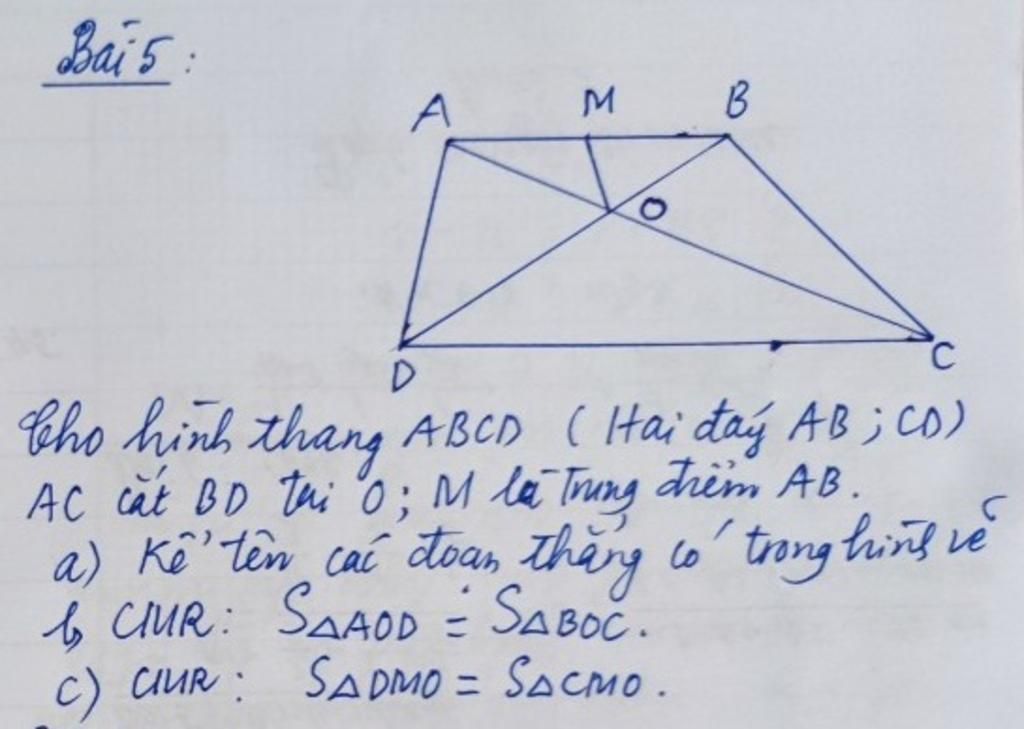 Bài 5 :
A M B
O
D C
Cho hình thang ABCD ( Hai đáy AB ; CD )
AC cắt BD tại O ; M là trung điểm AB .
a) Kể tên các đoạn thẳng có trong hình vẽ
b, CMR : S△AOD = S△BOC .
c) CMR : S△DMO = S△CMO .